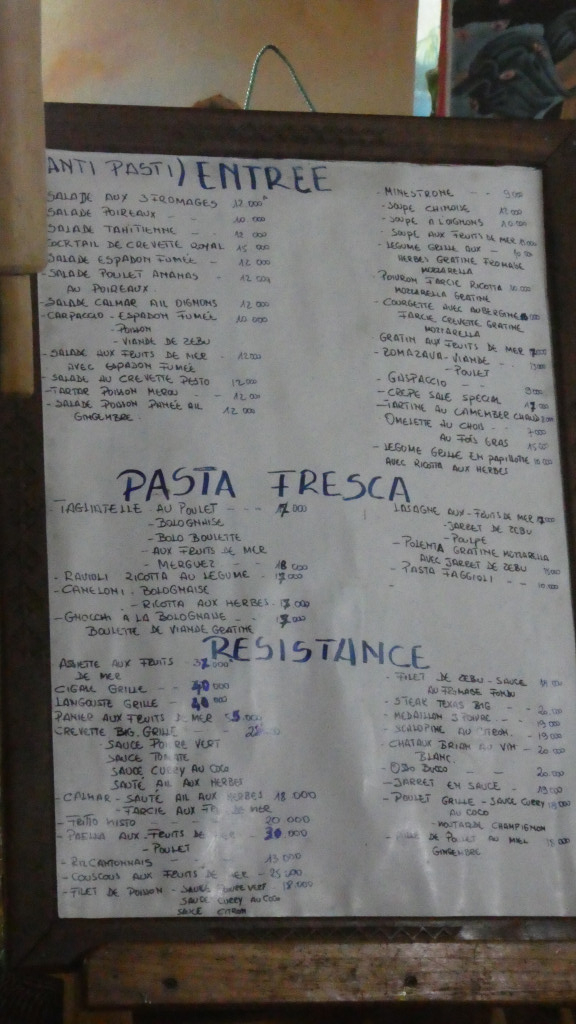 ANTI PASTI) ENTREE
SALADE AUX 3 FROMAGES 12 000
SALADE POIREAUX - - 10 000
SALADE TAHITIENNE - 12 000
COCKTAIL DE CREVETTE ROYAL 15 000
SALADE ESPADON FUMÉE - 12 000
- SALADE POULET ANANAS - 12 000
AU POIREAUX.
- SALADE CALMAR AIL OIGNONS 12 000
- CARPACCIO - ESPADON FUMÉE 10 000
- POISSON
- VIANDE DE ZEBU
- SALADE AUX FRUITS DE MER - 12000
AVEC ESPADON FUMÉE
- SALADE AU CREVETTE PESTO 12000
- TARTAR POISSON MEROU - - 12 000
- SALADE POISSON PANÉE AIL 12 000
GINGEMBRE.
- MINESTRONE - - 9 000
- SOUPE CHINOISE 12 000
- SOUPE A L'OIGNONS
- SOUPE AUX FRUITS DE MER
- LEGUME GRILLE AUX -
HERBES GRATINE FROMAGE
MOZZARELLA
- POIVRON FARCIE RICOTTA 10.000
MOZZARELLA GRATINE
- COURGETTE AVEC AUBERGINE
FARCIE CREVETTE GRATINE
MOZZARELLA
GRATIN AUX FRUITS DE MER
- ROMAZAVA - VIANDE -
- POULET
- GASPACCIO - -
- CREPE SALE SPECIAL
- TARTINE AU CAMEMBER CHAUD
OMELETTE AU CHOIX - - 7000
AU FOIS GRAS 15000
- LEGUME GRILLE EN PAPILLOTTE 10 000
AVEC RICOTTA AUX HERBES
PASTA FRESCA
- TAGLIATELLE AU POULET - - - 17 000
- BOLOGNAISE
- BOLO BOULETTE
- AUX FRUITS DE MER
- MERGUEZ - 18 000
- RAVIOLI RICOTTA AU LEGUME - 17000
- CANELONI. BOLOGNAISE
- RICOTTA AUX HERBES - 17 000
- GNOCCHI A LA BOLOGNAISE - 17000
BOULETTE DE VIANDE GRATINE
LASAGNE AUX - FRUITS DE MER
- JARRET DE ZEBU
- POULPE
- POLENTA GRATINE MOZZARELLA
AVEC JARRET DE ZEBU
- PASTA FAGGIOLI - - 10.000
RESISTANCE
ASSIETTE AUX FRUITS - 32 000
DE MER
CIGALE GRILLE - - 40 000
LANGOUSTE GRILLE - 40 000
PANIER AUX FRUITS DE MER
CREVETTE BIG. GRILLE
SAUCE POIVRE VERT
SAUCE TOMATE
SAUCE CURRY AU COCO
SAUTÉ AIL AUX HERBES
- CALMAR - SAUTÉ AIL AUX HERBES 18 000
- FARCIE AUX DE MER
- FRITTO MISTO - - 20 000
- PAELLA AUX - FRUITS DE MER - 30.000
- POULET
- RIZ CANTONNAIS - - 15 000
- COUSCOUS AUX FRUITS DE MER - 25 000
- FILET DE POISSON - SAUCE POIVRE VERT 18.000
SAUCE CURRY AU COCO
SAUCE CITRON
- FILET DE ZEBU - SAUCE
AU FROMAGE FONDU
- STEAK TEXAS BIG -
- MEDAILLON 3 POIVRE - - 19 000
- SCALOPINE AU CITRON. - 19 000
- CHATAUX BRIAN AU VIN - 20 000
BLANC.
- OSSO BUCCO - - 20.000
- JARRET EN SAUCE - - 19000
- POULET GRILLE - SAUCE CURRY
AU COCO
- MOUTARDE CHAMPIGNON
DE POULET AU MIEL
GINGEMBRE